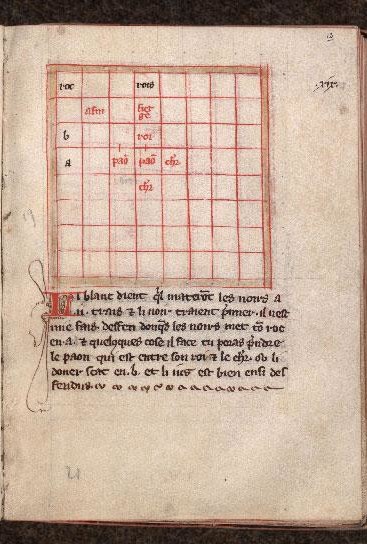 roc rois
alfin fierge
b roi
a paon paon chr
chr
Li blanc dient qil materont les noirs a
.ii. trais & li noir traient primer. il nest
mie fais. deffen donqes les noirs met ton roc
en .a. & quelquos cose il face tu poras prendre
le paon qui est entre son roi & le chr. ou li
doner scac en .b. et li ius est bien ensi def
fendus.